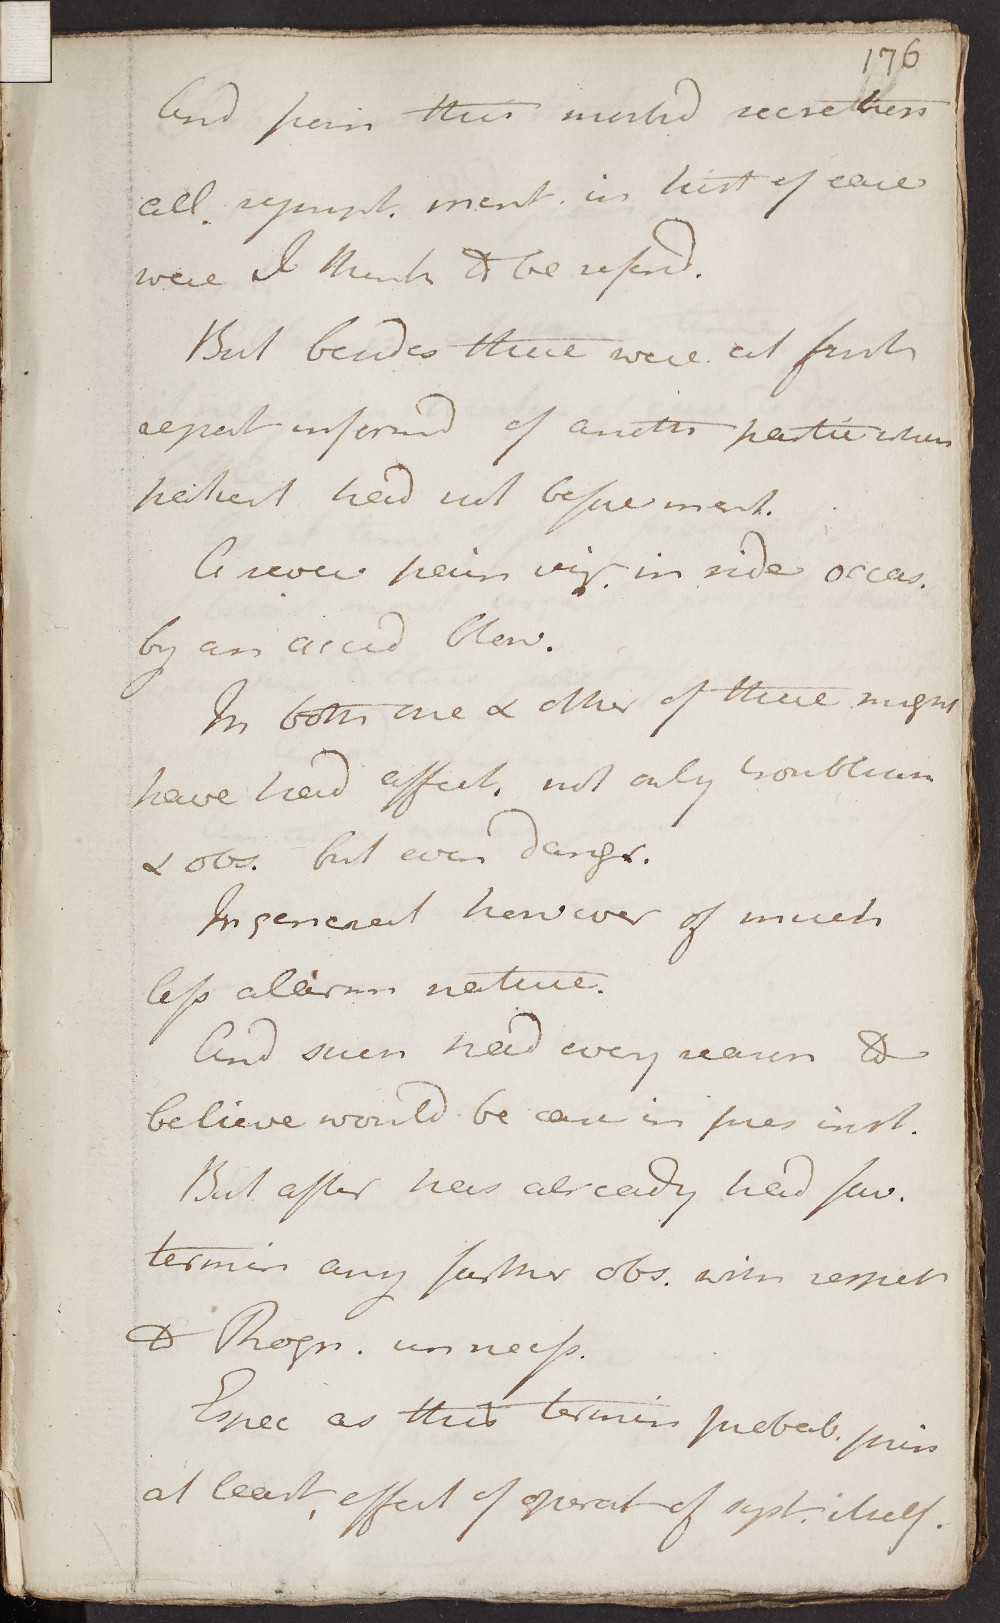 176
And from this morbid secretions
all. sympt. ment. in hist of case
were I think to be referd.
But besides these were at first
report informd of another partic when
patient had not before ment.
A severe pain viz. in side occas.
by an accid blow.
In both one & other of these might
have had effect, not only troublesom
& obs. but even danger.
In general however of much
less alarm nature.
And such had every reason to
believe would be case in pres inst.
But after has already had fav.
termin any further obs. with respect
to Progn. unness.
Espec as this termin probab.
at least, effect of operat of syst. itself.